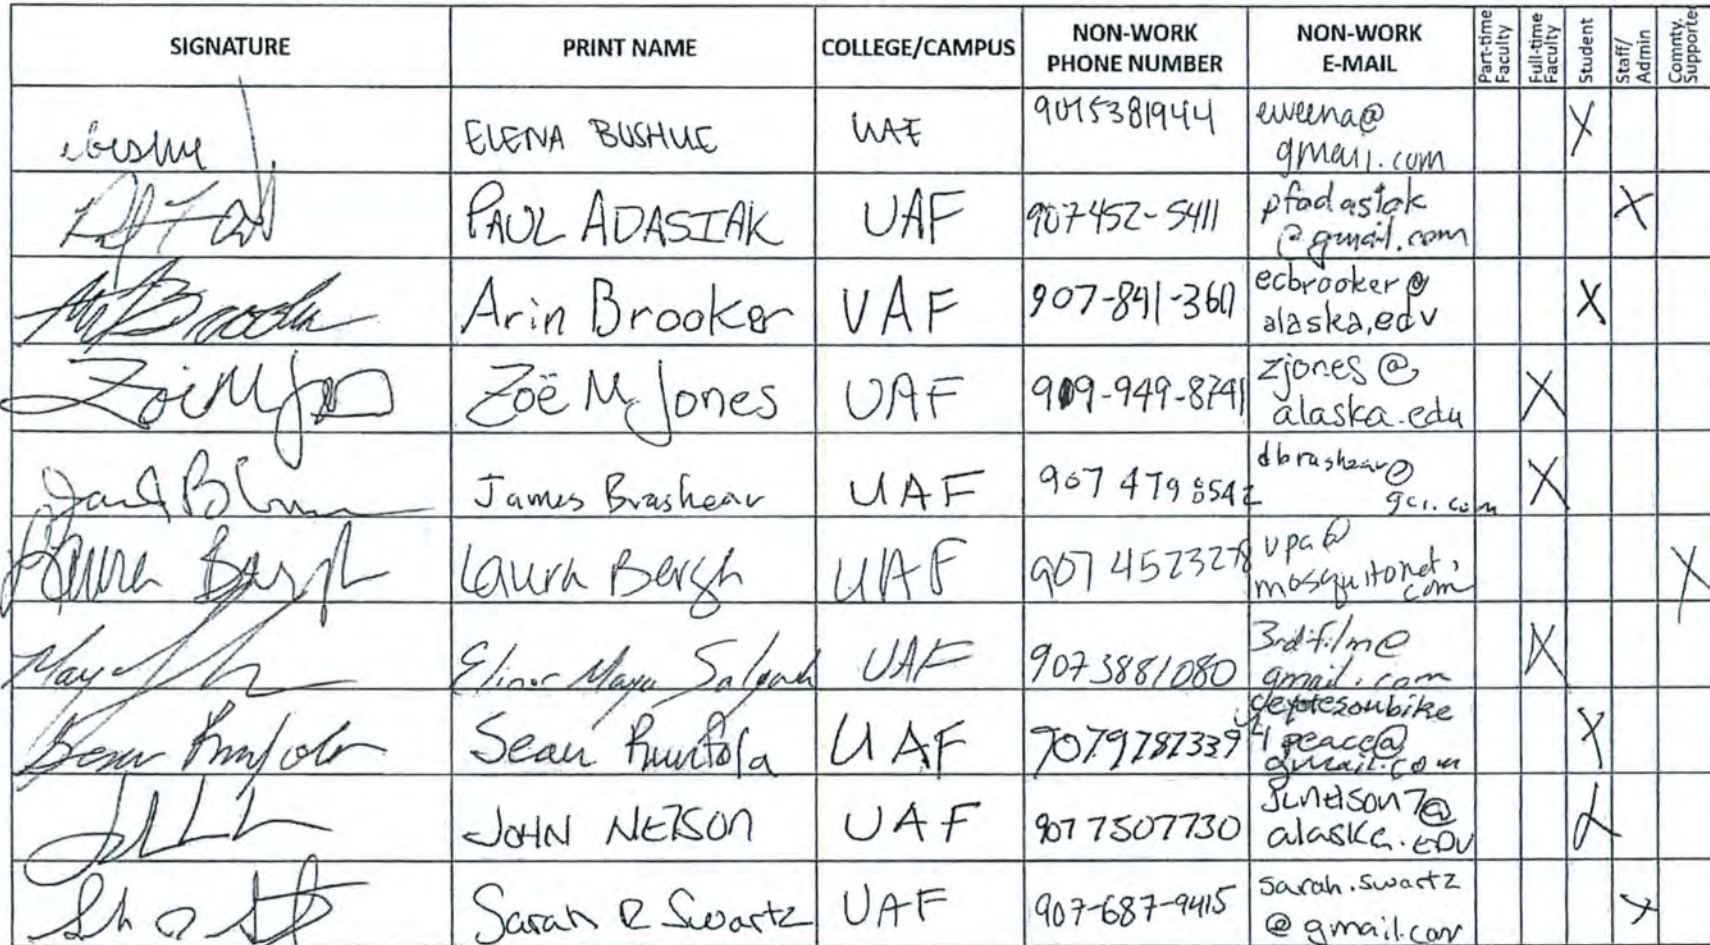 SIGNATURE PRINT NAME COLLEGE/CAMPUS NON-WORK PHONE NUMBER NON-WORK E-MAIL Part-time Faculty Full-time Faculty Student Staff/Admin Comnty. Supporte
ELENA BUSHUE UAF 9075381944 eweena@
gmail.com X
PAUL ADASIAK UAF 907452-5411 pfadasiak
@gmail.com X
Arin Brooker UAF 907-841-3611 ecbrooker@
alaska.edu X
Zoë M Jones UAF 909-949-8741 zjones@
alaska.edu X
James Brashear UAF 907 479 8542 dbrashear@
gci.com X
Laura Bergh UAF 907 4523278 vpa@
mosquitonet.
com X
Elinor Maya UAF 9073881080 3rdifilm@
gmail.com X
Sean UAF 9079787339 coyotesonbike
4peace@
gmail.com X
JOHN NELSON UAF 9077507730 jlnelson7@
alaska.EDU X
Sarah R Swartz UAF 907-687-9415 sarah.swartz
@gmail.com X